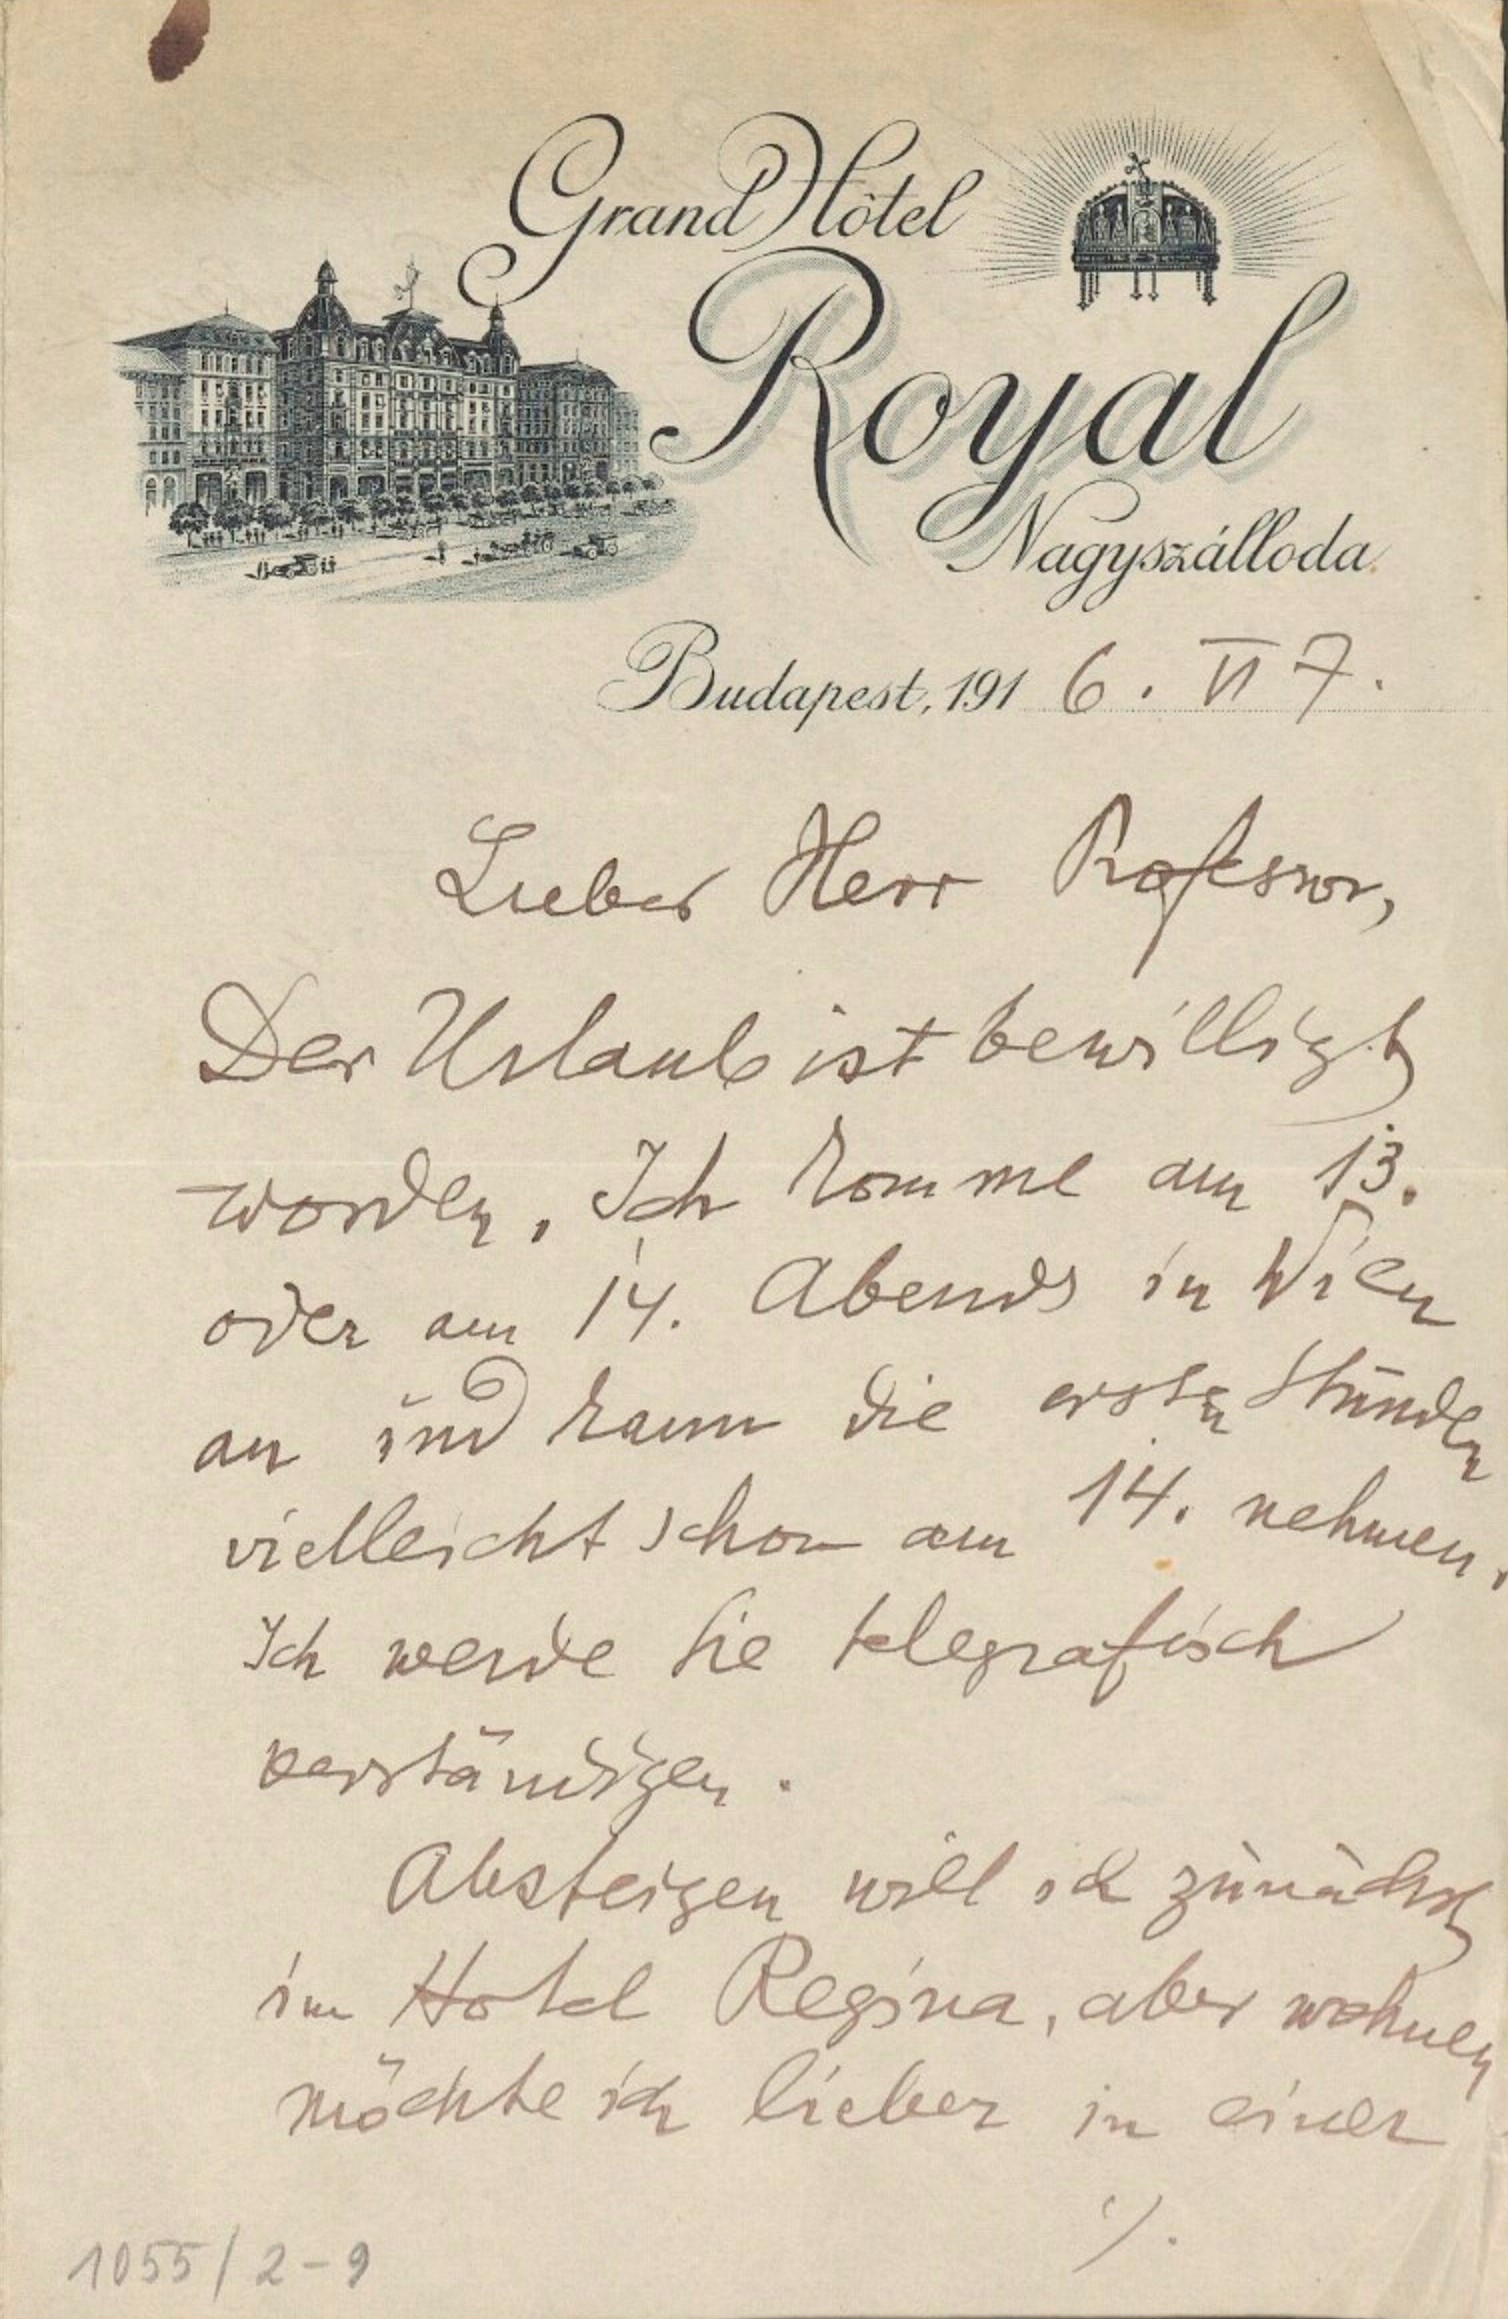 Grand Hôtel
Royal
Nagyszálloda
Budapest, 191 6. VI 7.
Lieber Herr Professor,
Der Urlaub ist bewilligt
worden. Ich komme am 13.
oder am 14. Abends in Wien
an und kann die ersten Stunden
vielleicht schon am 14. nehmen.
Ich werde Sie telegrafisch
verständigen.
Absteigen will ich zunächst
im Hotel Regina, aber wohnen
möchte ich lieber in einer
./.
1055/2-9